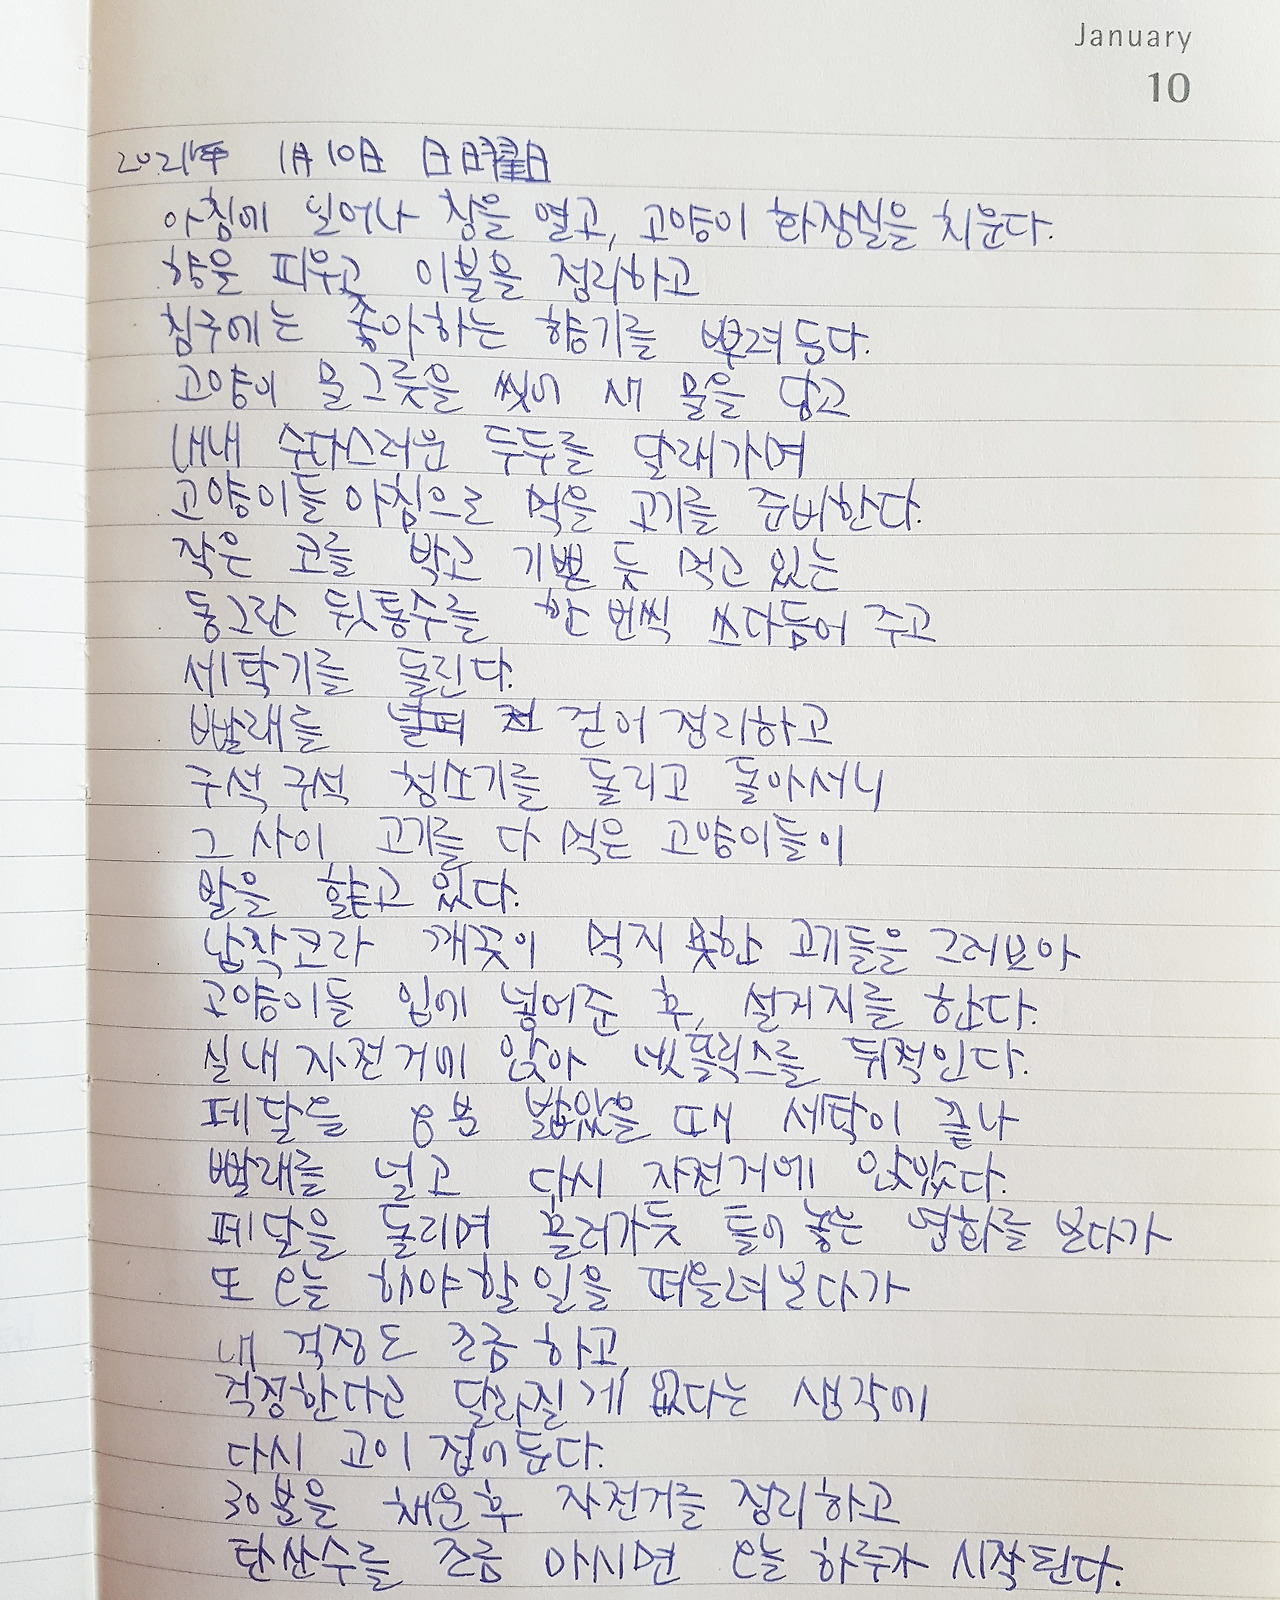 January
10
2021年 1月 10日 日曜日
아침에 일어나 창을 열고, 고양이 화장실을 치운다.
향을 피우고 이불을 정리하고
침구에는 좋아하는 향기를 뿌려둔다.
고양이 물그릇을 씻어 새 물을 담고
내내 수다스러운 두두를 달래가며
고양이들 아침으로 먹을 고기를 준비한다.
작은 코를 박고 기쁜 듯 먹고 있는
동그란 뒷통수를 한 번씩 쓰다듬어 주고
세탁기를 돌린다.
빨래를 걷어 정리하고
구석구석 청소기를 돌리고 돌아서니
그 사이 고기를 다 먹은 고양이들이
발을 핥고 있다.
납작코라 깨끗이 먹지 못한 고기들을 그러모아
고양이들 입에 넣어준 후, 설거지를 한다.
실내자전거에 앉아 넷플릭스를 뒤적인다.
페달을 8분 밟았을 때 세탁이 끝나
빨래를 널고 다시 자전거에 앉았다.
페달을 돌리며 흘러가듯 틀어놓는 영화를 보다가
또 오늘 해야할 일을 떠올려보다가
내 걱정도 조금 하고,
걱정한다고 달라질 게 없다는 생각에
다시 고이 접어둔다.
30분을 채운 후 자전거를 정리하고
탄산수를 조금 마시면 오늘 하루가 시작된다.